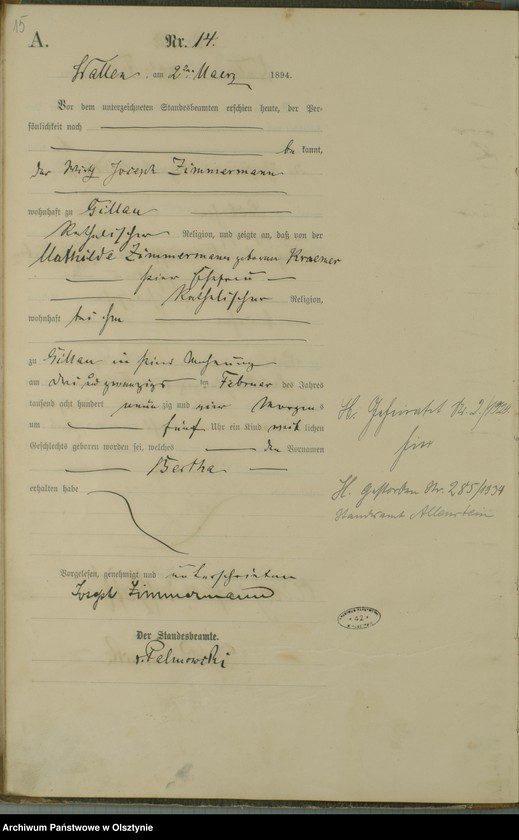 15
A.
Nr. 14.
Wallen, am 2ten Maerz 1894.
Vor dem unterzeichneten Standesbeamten erschien heute, der Per-
sönlichkeit nach
be kannt,
der Wirth Joseph Zimmermann
wohnhaft zu Gillau
Katholischer Religion, und zeigte an, daß von der
Mathilde Zimmermann geborenen Kraemer
seiner Ehefrau
Katholischer Religion,
wohnhaft bei ihm
zu Gillau in seiner Wohnung
am drei und zwanzigsten Februar des Jahrs
tausend acht hundert neun zig und vier Morgens
um fünf Uhr ein Kind weib lichen
Geschlechts geboren worden sei, welches den Vornamen
Bertha
erhalten habe
Vorgelesen, genehmigt und unterschrieben
Joseph Zimmermann
Der Standesbeamte.
v. Pelmowski
H. Geheiratet Nr. 2/
hier
H. Gestorben Nr. 285/1939
Standesamt Allenstein
* 42 *
Archiwum Państwowe w Olsztynie